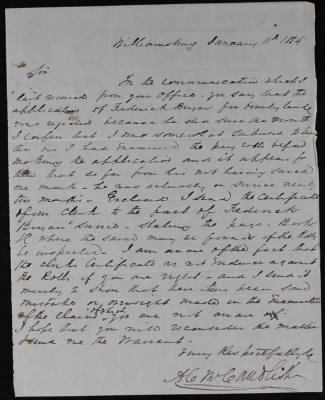 Williamsburg January 11th 185
Sir
In the communication which I
last received from your office - you say that the
application of Frederick Bryan for bounty land
was rejected because he did not serve one month
I confess that I was somewhat surprised to hear
this as I had examined the pay rolls before
making the application and it appears from
that so far from his not having served
one month - he was actually in service nearly
two months - Enclosed I send the certificate
of our Clerk to the fact of Frederick
Bryan' service - stating the page - Book
&c where the same may be found if the Rolls
be inspected - I am aware of the fact that
the Clerks Certificate is not evidence against
the Rolls if you are right - and I send it
merely to show that there has been some
mistake or oversight made in the examination
of the claim of which you are not aware
I hope that you will reconsider the matter
& send me the Warrant.
Yours Respectfully &c